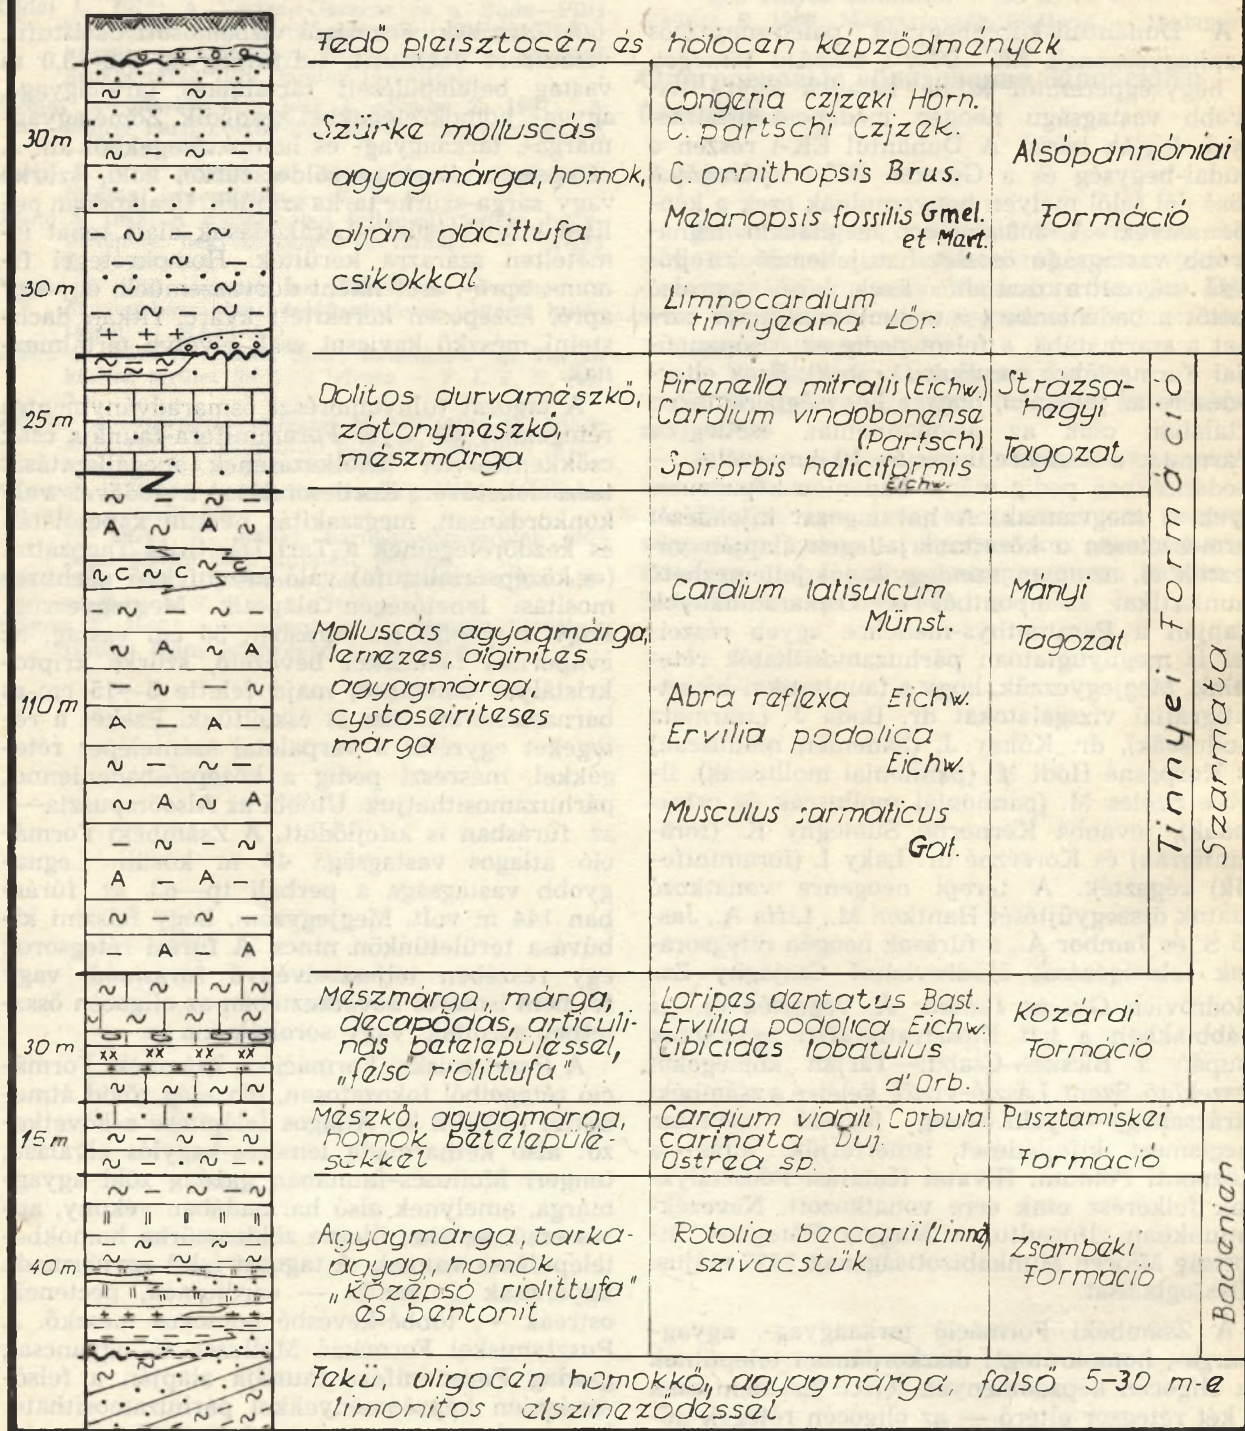 Fedő pleisztocén és holocén képződmények
30 m
30 m
Szürke molluscás
agyagmárga, homok,
alján dácittufa
csikokkal
Congeria czjzeki Hörn.
C. partschi Czjzek.
C. ornithopsis Brus.
Melanopsis fossilis Gmel.
et Mart.
Limnocardium
tinnyeana Lőr.
Alsópannóniai
Formáció
25 m
Oolitos durvamészkő,
zátonymészkő,
mészmárga
Pirenella mitralis (Eichw.)
Cardium vindobonense
(Partsch)
Spirorbis heliciformis
Eichw.
Strázsa-
hegyi
Tagozat
110 m
Molluscás agyagmárga,
lemezes, alginites
agyagmárga,
cystoseiriteses
márga
Cardium latisulcum
Münst.
Abra reflexa Eichw.
Ervilia podolica
Eichw.
Musculus sarmaticus
Gat.
Mányi
Tagozat
Tinnyei Formáció
Szarmata
30 m
Mészmárga, márga,
decapódás, articuli-
nás betelepüléssel,
„felső riolittufa"
Loripes dentatus Bast.
Ervilia podolica Eichw.
Cibicides lobatulus
d'Orb.
Kozárdi
Formáció
15 m
Mészkő, agyagmárga,
homok betelepülé-
sekkel
Cardium viagli, Corbula
carinata Duj.
Ostrea sp.
Pusztamiskei
Formáció
40 m
Agyagmárga, tarka-
agyag, homok
„középső riolittufa"
és bentonit
Rotalia beccarii (Linné)
szivacstűk
Zsámbéki
Formáció
Badenian
Fekü, oligocén homokkő, agyagmárga, felső 5-30 m-e
limonitos elszíneződéssel